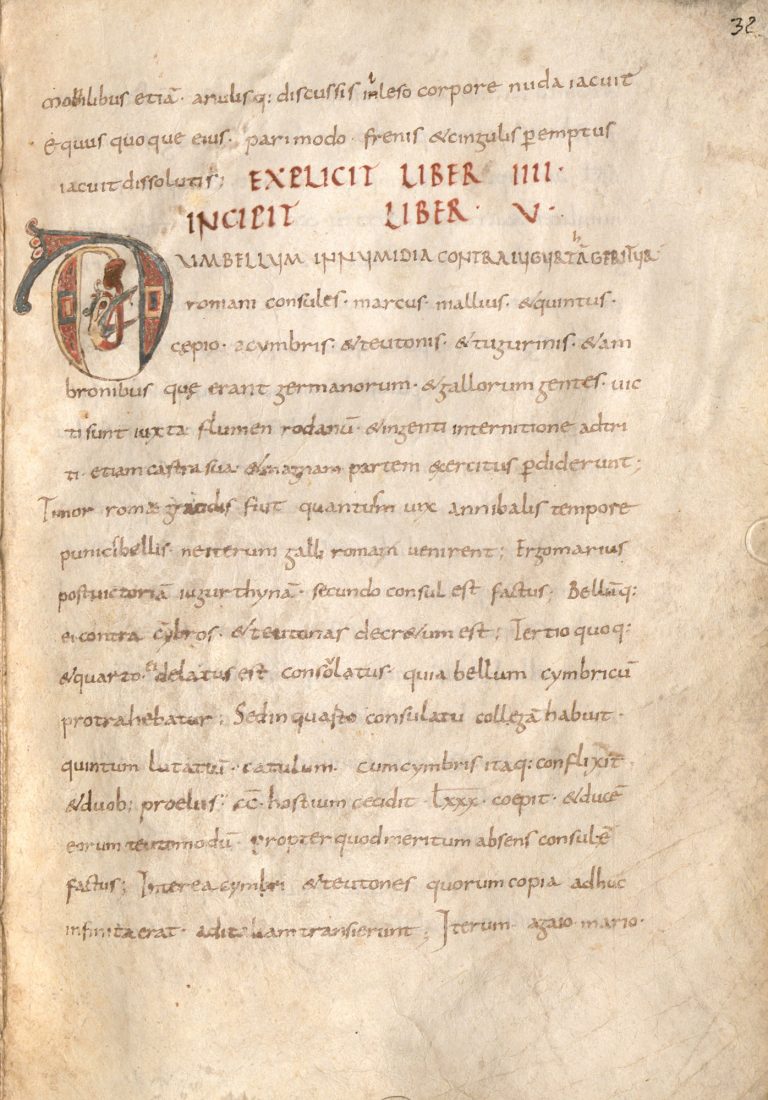 32
mobilibus etiā· arulisq: discussis inleso corpore nuda iacuit
equus quoque eius· pari modo· frenis &cingulis p̄emptus
iacuit dissolutis; EXPLICIT LIBER IIII·
INCIPIT LIBER· V·
DVM BELLVM IN NVMIDIA CONTRA IVGVRTHĀ GERITVR
romani consules· marcus mallius· &quintus·
cępio· acymbris· &teutonis· &tugurinis· &am
bronibus quę erant germanorum· &gallorum gentes· vic
ti sunt iuxta flumen rodanū· &ingenti internitione adtri
ti· etiam castra sua· &magnam partem exercitus p̄diderunt;
Timor romæ grandis fuit quantum vix annibalis tempore
punici bellis· ne iterum galli romam venirent; Ergo marius
post victoriā iugurthynā· secundo consul est factus; Bellūq:
ei contra cȳbros· &teutonas decr&um est; Tertio quoq:
&quarto· ei delatus est consolatus· quia bellum cymbricū
protrahebatur; Sed in quarto consulatu collegā habuit·
quintum lutatiū· catulum· cum cymbris itaq: conflixit
&duob; proeliis· cc̄· hostium cecidit· lxxx· coepit· &ducē
eorum teutomodū· propter quod meritum absens consul ē
factus; Interea cymbri &teutones quorum copia adhuc
infinita erat· ad italiam transierunt; Iterum· agaio· mario·